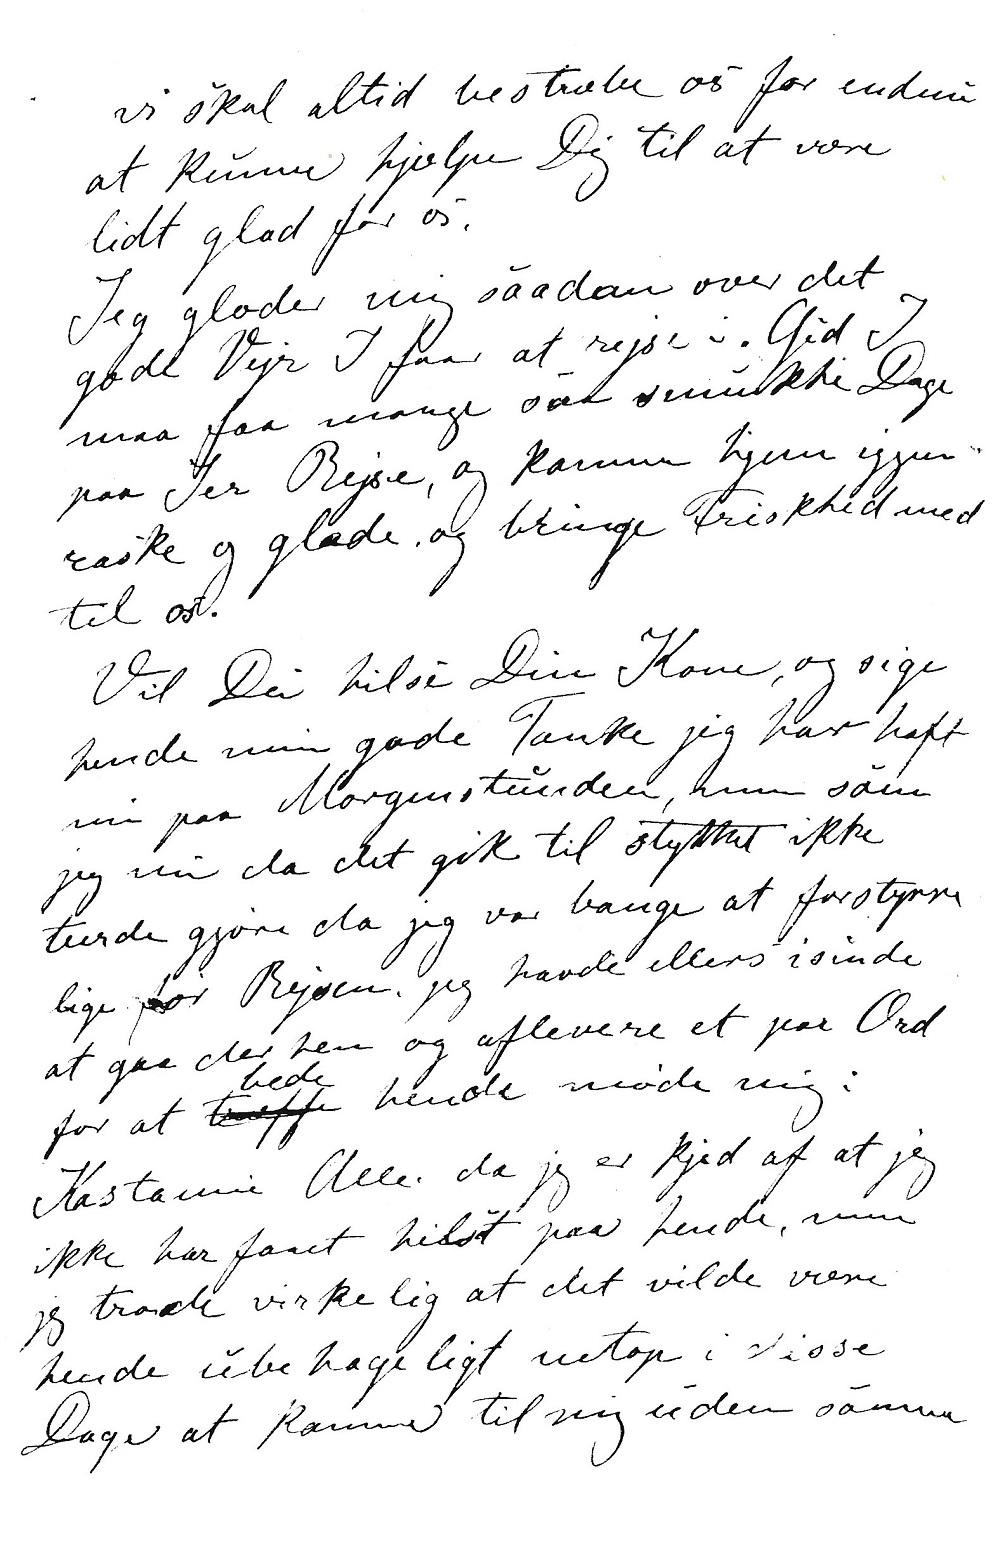 vi skal altid bestræbe os for endnu
at kunne hjælpe Dig til at være
lidt glad for os.
Jeg glæder mig saadan over det
gode Vejr I faar at rejse i. Gid I
maa faa mange saa smukke Dage
paa Jer Rejse, og komme hjem igjen
raske og glade. og bringe Friskhed med
til os.
Vil Du hilse Din Kone, og sige
hende min gode Tanke jeg har haft
nu paa Morgenstunden, men som
jeg nu da det gik til stykket ikke
turde gjøre da jeg var bange at forstyrre
lige for Rejsen. jeg havde ellers isinde
at gaa derhen og aflevere et par Ord
for at træffe bede hende møde mig i
Kastanie Alle. da jeg er kjed af at jeg
ikke har faaet hilst paa hende, men
jeg troede virkelig at det vilde være
hende ubehageligt netop i disse
Dage at komme til mig uden samme